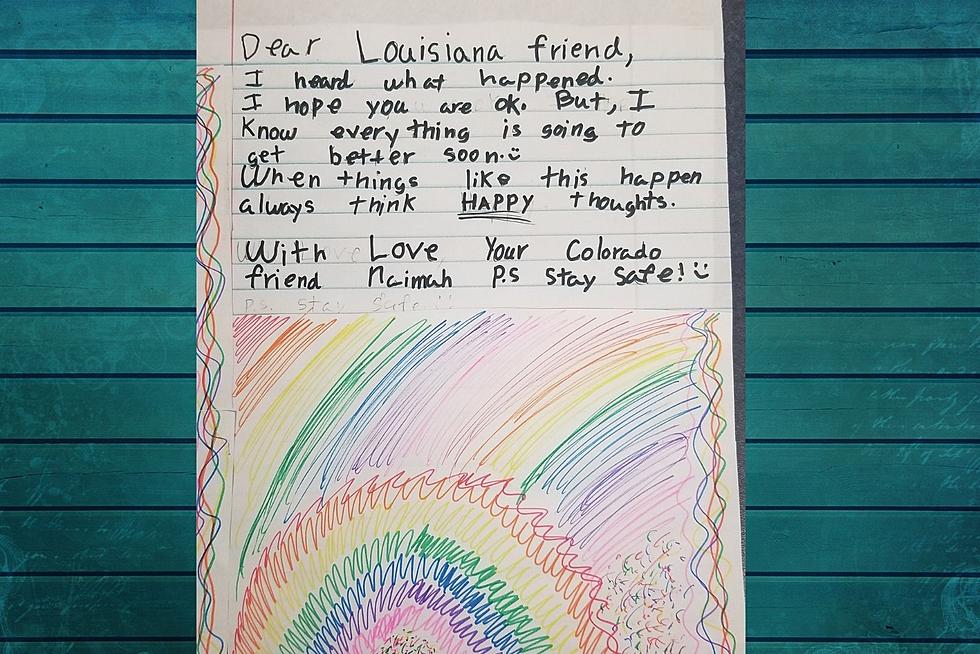 Dear Louisiana friend,
I heard what happened.
I hope you are ok. But, I
know everything is going to
get better soon.
When things like this happen
always think HAPPY thoughts.
With Love Your Colorado
friend Naimah P.S stay safe!
P.S. stay safe !!